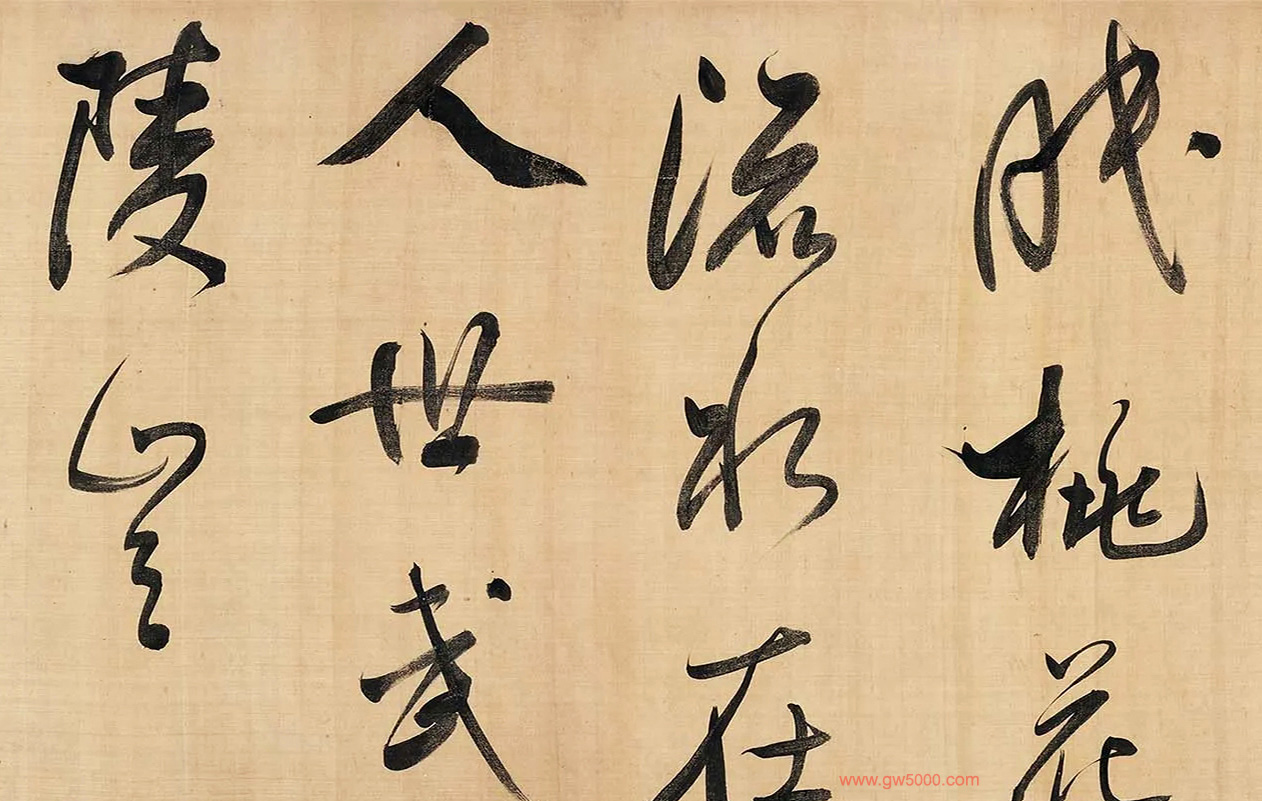 眠桃花
流水在
人世武
陵豈
www.gw5000.com